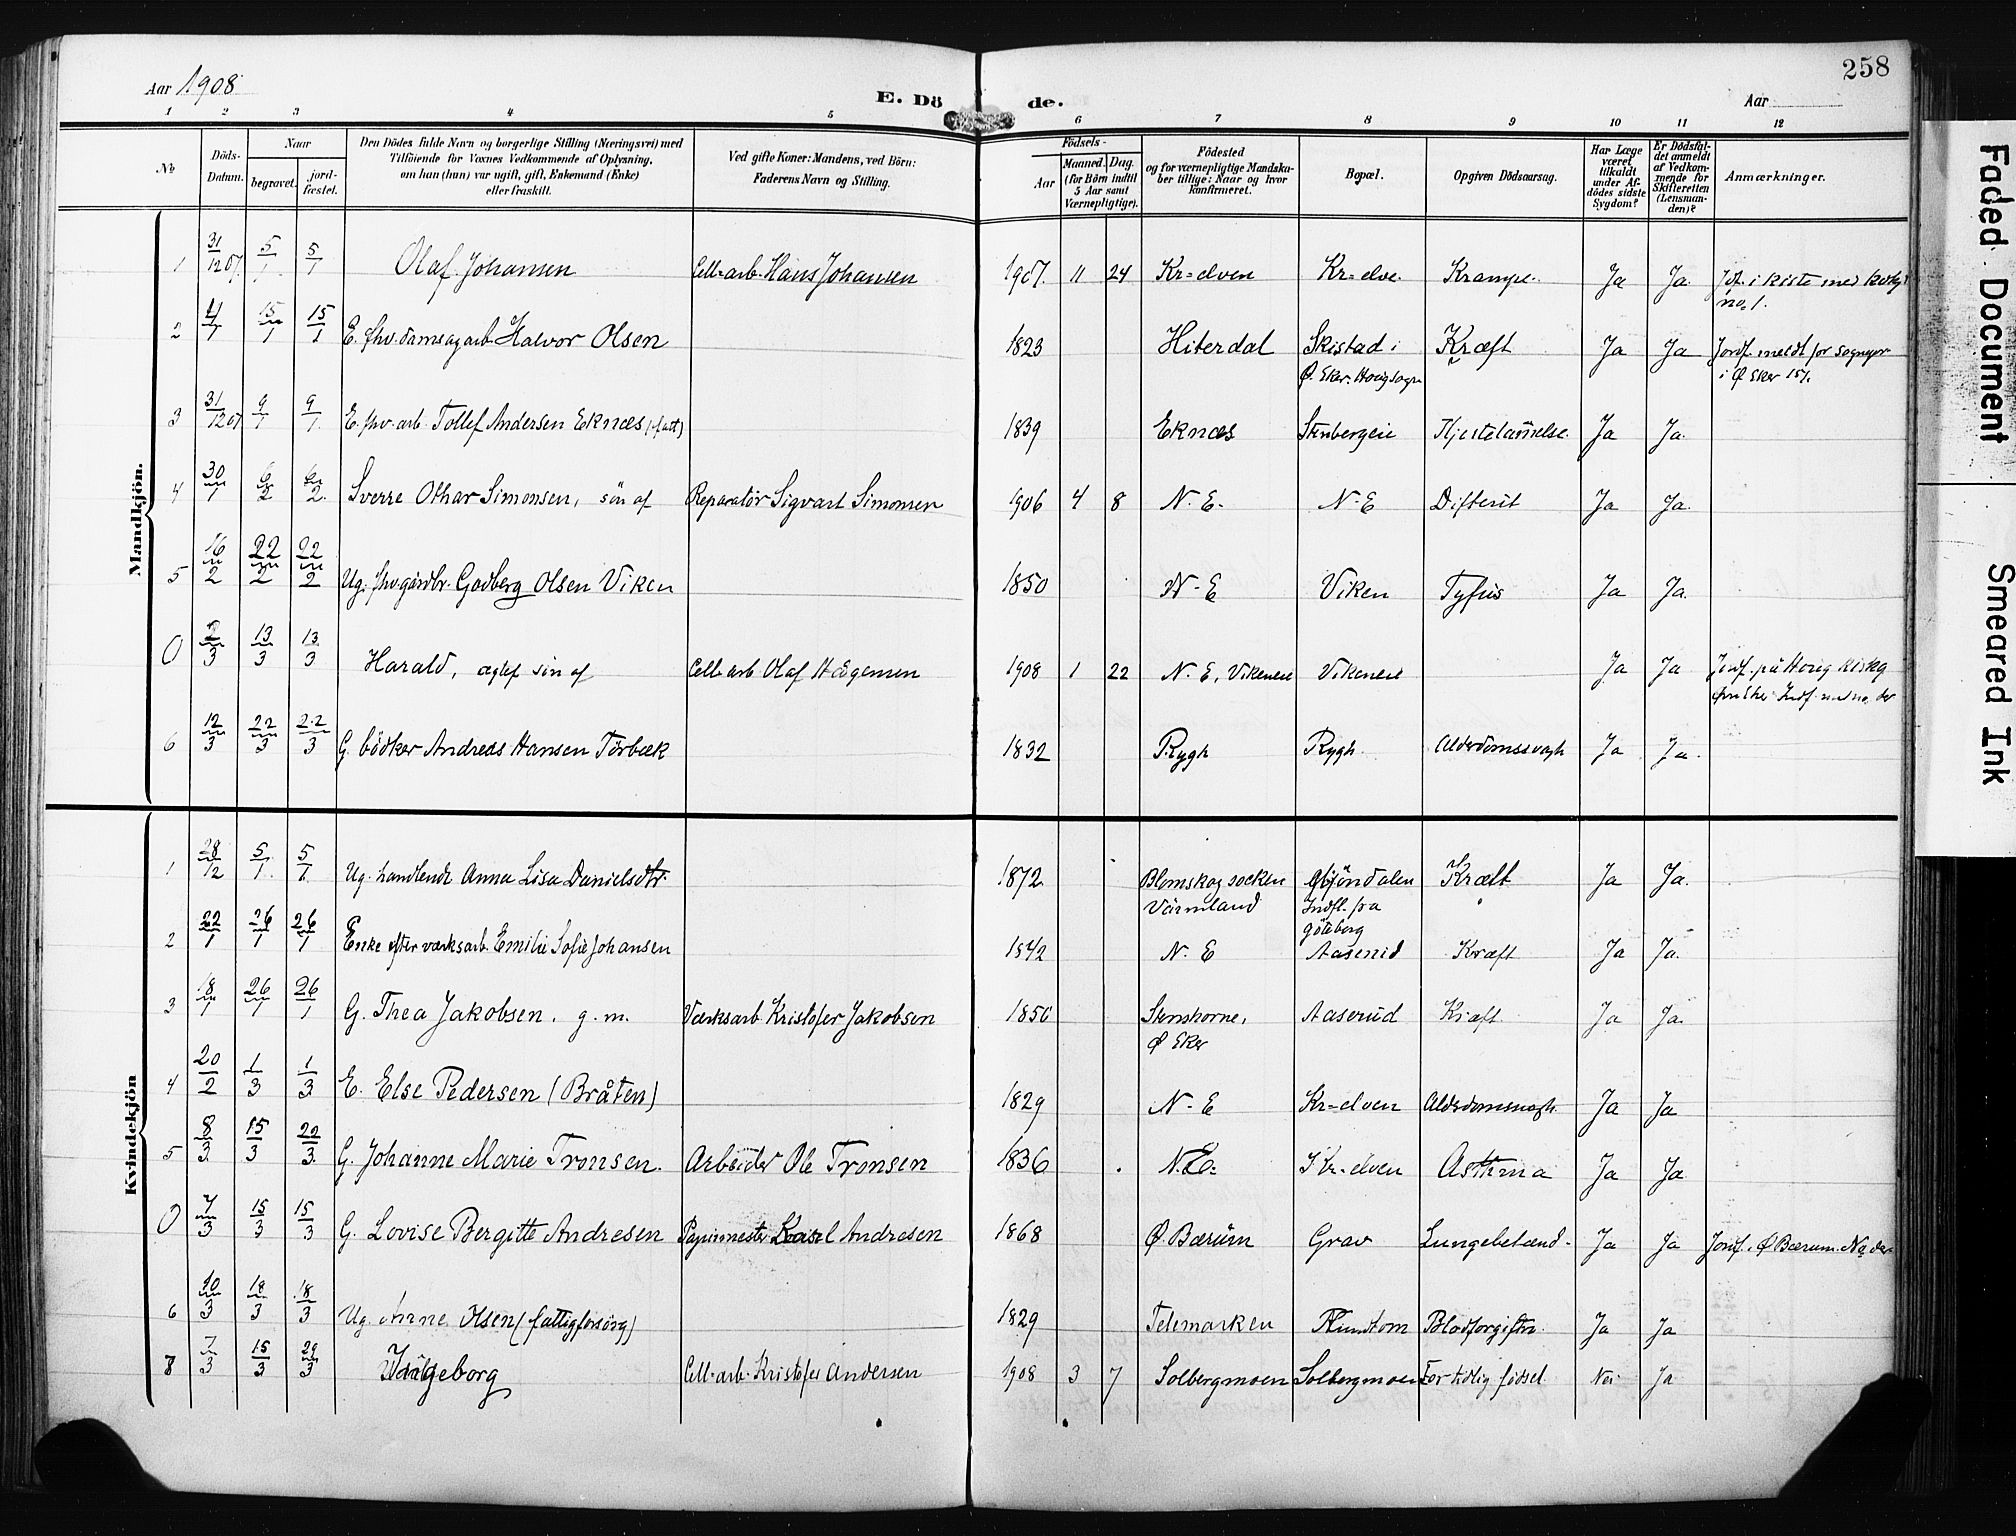 258
Aar 1908
E. Dö de.
Aar
1 2 3 4 5 6 7 8 9 10 11 12
No
Döds-Datum.
Naar
begravet.
jord-fæstet.
Den Dödes fulde Navn og borgerlige Stilling (Næringsvei) med
Tilföiende for Voxnes Vedkommende af Oplysning,
om han (hun) var ugift, gift, Enkemand (Enke)
eller fraskilt.
Ved gifte Koner: Mandens, ved Börn:
Faderens Navn og Stilling.
Födsels-
Aar
Maaned. Dag.
(for Börn indtil
5 Aar samt
Værnepligtige).
Födested
og for værnepligtige Mandska-
ber tillige: Naar og hvor
konfirmeret.
Bopæl.
Opgiven Dödsaarsag.
Har Læge
været
tilkaldt
under Af-
dödes sidste
Sygdom?
Er Dödsfal-
det anmeldt
af Vedkom-
mende for
Skifteretten
(Lensman-
den)?
Anmærkninger.
Mandkjön.
1 31/12 07. 5/1 5/1 Olaf Johansen Cell-arb. Hans Johansen 1907. 11 24 Kr-elven Kr-elve. Krampe. Ja Ja. i kiste med
no. 1.
2 4/1 15/1 15/1 E. fhv. damsagarb Halvor Olsen 1823 Hiterdal Skistad i Kræft Ja Ja Jordf. meldt for sognepr
Ø. Eker. Hougsogn i Ø Eker 15/1.
3 31/12 07 9/1 9/1 E. fhv. arb. Tollef Andersen Eknæs (fatt) 1839 Eknæs Stenbergeie Hjertelammelse. Ja Ja.
4 30/1 6/2 6/2 Sverre Othar Simonsen, sön af Reparatör Sigvart Simonsen 1906 4 8 N. E. N-E Difterit Ja Ja.
5 16/2 22/2 22/2 Ug. fhv. gårdbr. Godberg Olsen Viken 1850 N-E Viken Tyfus Ja Ja.
0 2/3 13/3 13/3 Harald, ægtef sön af Cell-arb Olaf Haagensen 1908 1 22 N. E, Vikeneie Vikeneie Ja Ja Jordf. på Houg
6 12/3 22/3 22/3 G. bödker Andreas Hansen Torbæk 1832 Rygh Rygh. Alderdomssvagh Ja Ja.
Kvindekjön
1 28/12 5/1 5/1 Ug. handlende Anna Lisa Danielsdtr. 1872 Blomskog socken Mjöndalen Kræft Ja Ja.
Värmland Indfl. fra
göteborg
2 22/1 26/1 26/1 Enke efter værksarb. Emilie Sofie Johansen 1842 N. E Aaserud Kræft Ja Ja.
3 18/1 26/1 26/1 G. Thea Jakobsen. g. m. Værksarb Kristofer Jakobsen 1850 Stenshorne, Aaserud Kræft. Ja Ja.
Ø Eker
4 20/2 1/3 1/3 E. Else Pedersen (Bråten) 1829 N-E Kr-elven Alderdomssvagh. Ja Ja
5 8/3 15/3 22/3 G. Johanne Marie Tronsen. Arbeider Ole Tronsen 1836 N. E. Kr-elven Asthma Ja Ja
0 7/3 15/3 15/3 G. Lovise Bergitte Andresen Papirmester Andresen 1868 Ø Bærum Grav Lungebetænd- Ja Ja Jordf. Ø Bærum. No der
6 10/3 18/3 18/3 Ug. Anne Olsen (fattigforsörg) 1829 Telemarken Blodforgiftn. Ja Ja
7 7/3 15/3 29/3 Ingeborg Cell-arb. Kristofer Andersen 1908 3 7 Solbergmoen Solbergmoen For tidlig födsel Nei Ja
Faded Document
Smeared Ink